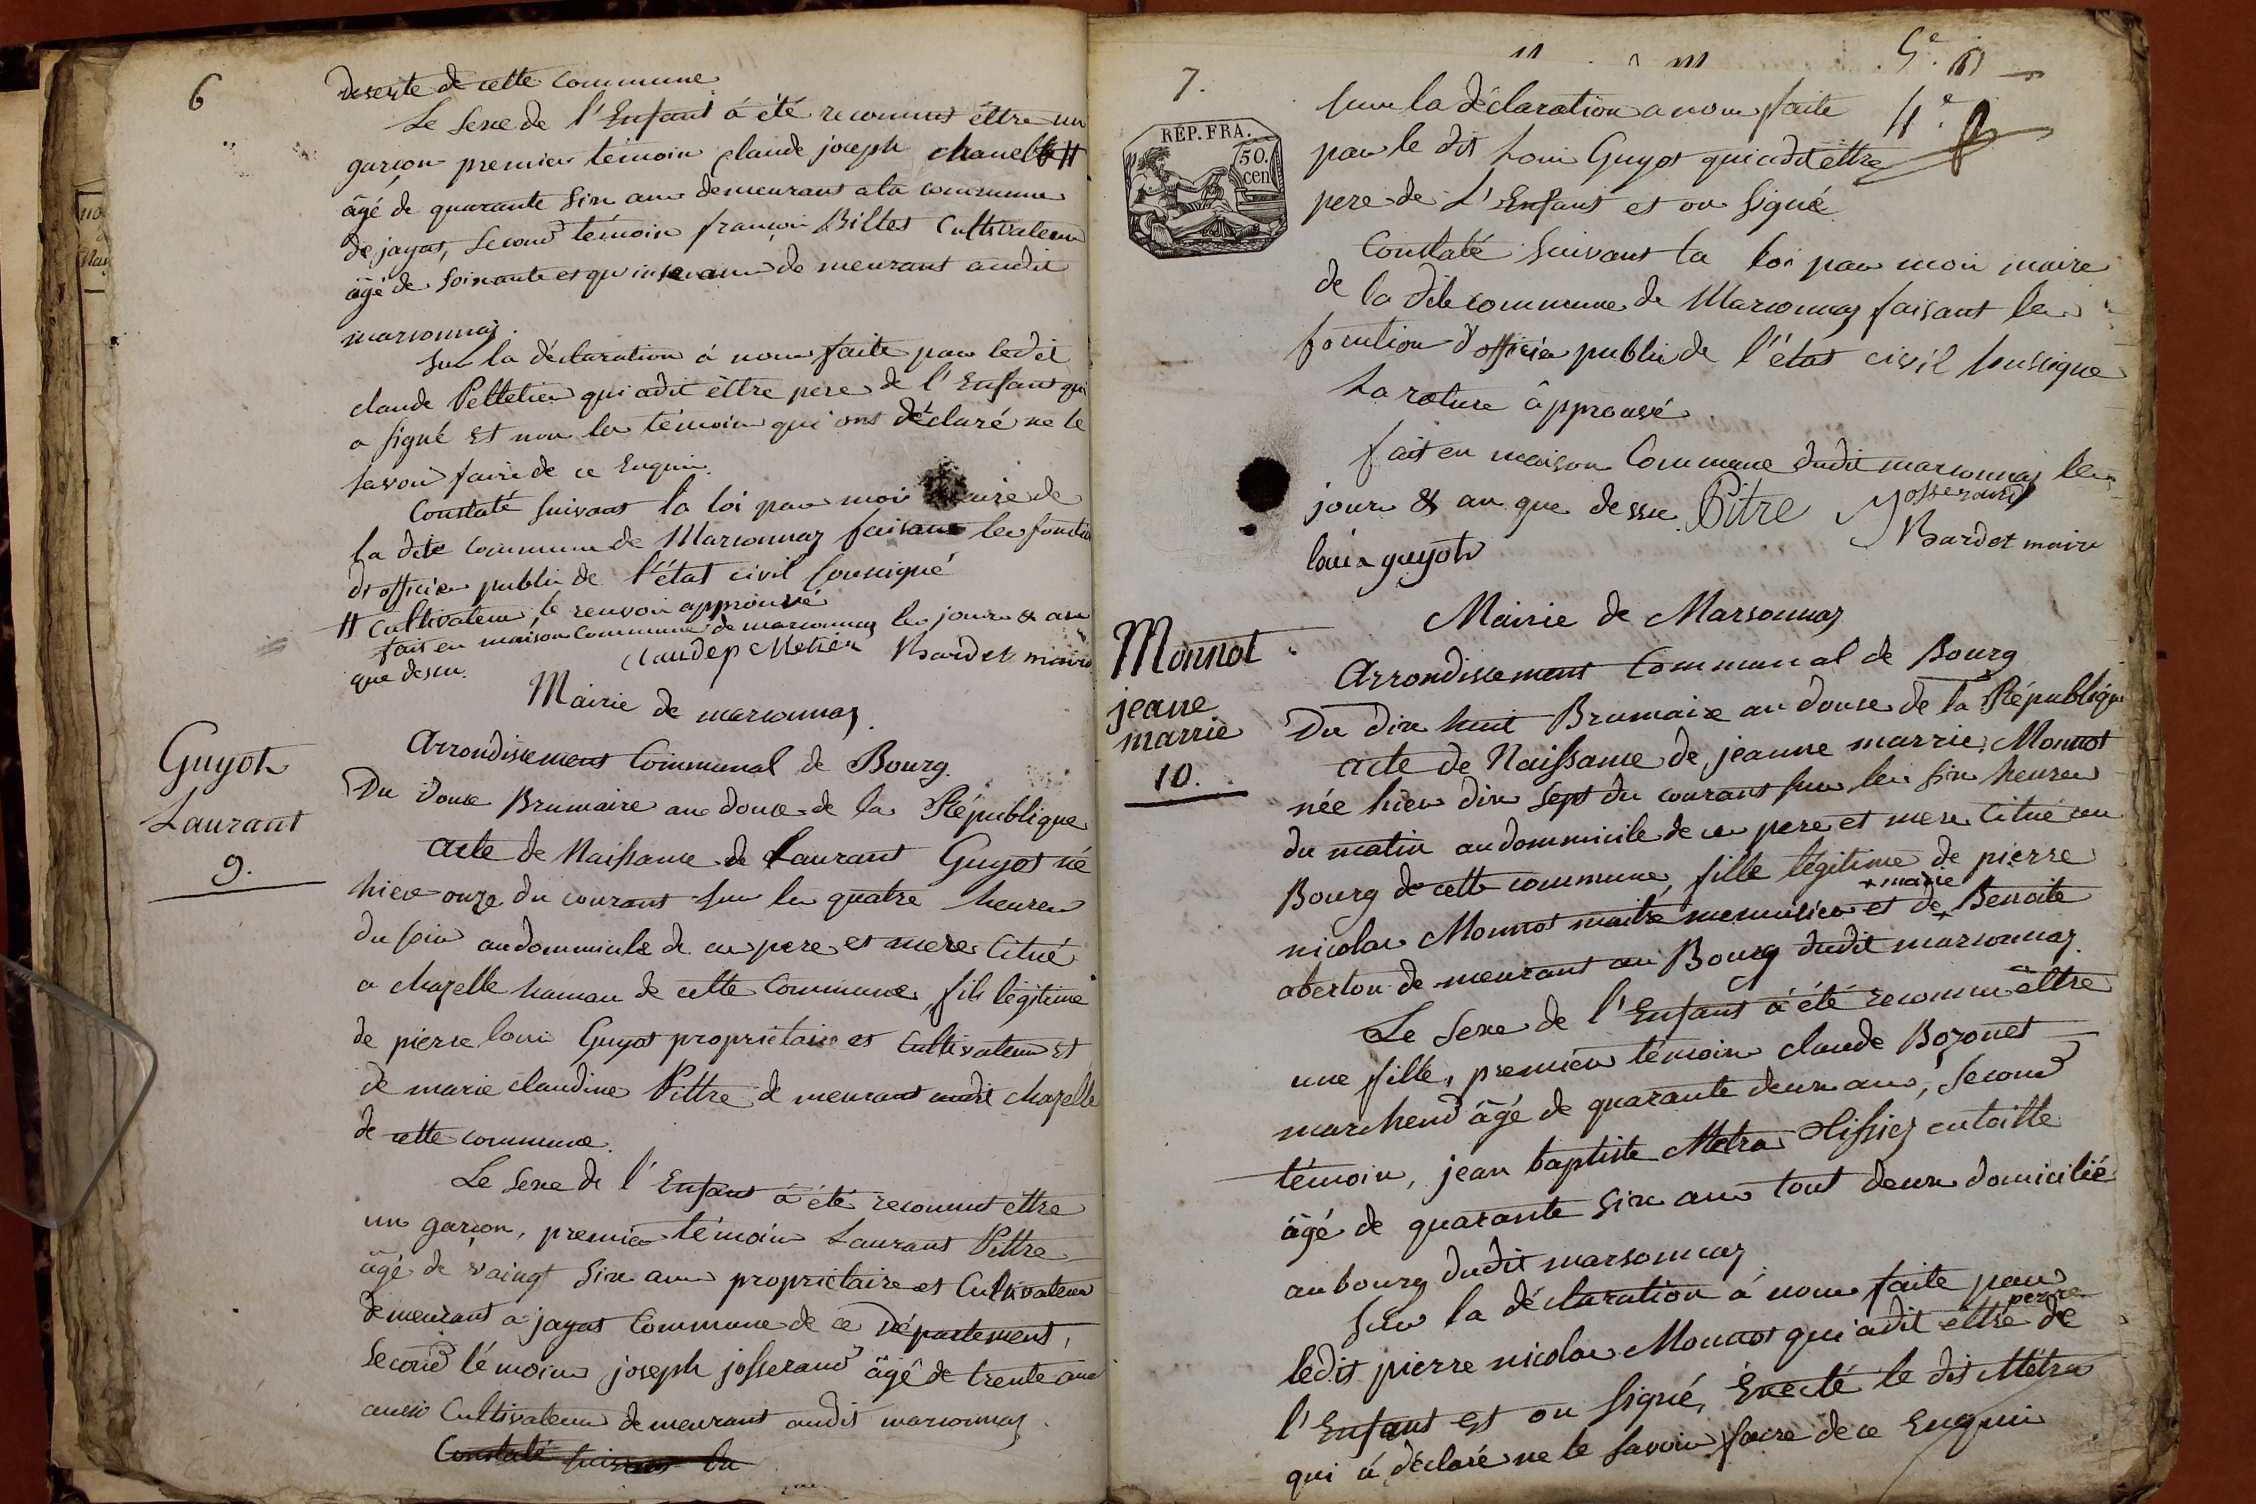 6
deserte de cette commune
Le sexe de l'Enfant à été reconnus êttre un
garcon premier témoin claude joseph chanel #
âgé de quarante six ans demeurant a la commune
de jayat, second témoin francoi Billet Cultivateur
âgé de soixante et quinse ans de meurant audit
marsonnaz.
Sur la déclaration à nous faite par ledit
claude Pelletier qui adit êttre pere de l'Enfant qui
a signé Et non les témoin qui ont déclaré ne le
savoir faire de ce Enquis.
Constaté suivant la loi par moi maire de
la dite commune de Marsonnaz faisant les fonction
d'officier public de l'état civil soussigné
# Cultivateur, le renvoir approuvé
fait en maison commune de marsonnaz les jour & an
que dessu. Claude p Metier Bardet maire
Mairie de marsonnaz.
Guyot
Laurant
9.
Arrondissement Communal de Bourg.
Du douse Brumaire an douse de la République
Acte de Naissance de Laurant Guyot né
hier onze du courant sur les quatre heures
du soir audommicile de ces pere et mere citué
a chazelle hamau de cette Commune, fils légitime
de pierre loui Guyot proprietaire et Cultivateur Et
de marie claudine Pittre de meurant audit chazelle
de cette commune.
Le sexe de l'Enfant à été reconnut ettre
un garcon, premier témoin Laurant Pittre
âgé de vaingt six ans proprietaire et Cultivateur
demeurant a jayat Commune de ce Département,
Second témoin joseph josserand âgé de trente ans
aussi Cultivateur demeurant audit marsonnaz.
Constaté suivant la
7.
5.e
4.e
REP. FRA.
50.
cen
sur la déclaration a nous faite
par le dit Loui Guyot qui adit êttre
pere de L'Enfant et on signé
Constaté suivant la loi par moi maire
de la dite commune de Marsonnaz faisant les
fonction d'officier public de l'état civil soussigne
La rature âpprouvé
fait en maison Commune dudit marsonnaz les
jour & an que dessu Pitre Josserand
louis guyot Bardet maire
Mairie de Marsonnaz
Monnot
jeane
marrie
10.
Arrondissement Communal de Bourg
Du dix huit Brumaire an douse de la République
acte de Naissance de jeanne marrie Monnot
née hier dix sept du courant sur les six heures
du matin audommicile de ces pere et mere citué au
Bourg de cette commune, fille légitime de pierre
+ marie
nicolas Monnot maitre menusier et de + Benoite
oberlon demeurant au Bourg dudit marsonnaz.
Le sexe de l'Enfant à été reconnu êttre
une fille, premier témoin claude Bozonet
marchend âgé de quarante deux ans, second
témoin, jean baptiste Metra tissier entoille
âgé de quarante six ans tout deux domicilié
au bourg dudit marsonnaz
Sur la déclaration à nous faite par
perre
ledit pierre nicolas Monnot qui adit ettre de
l'Enfant Et on signé, Execté le dit Métra
qui à déclaré ne le savoir faire de ce Enquis